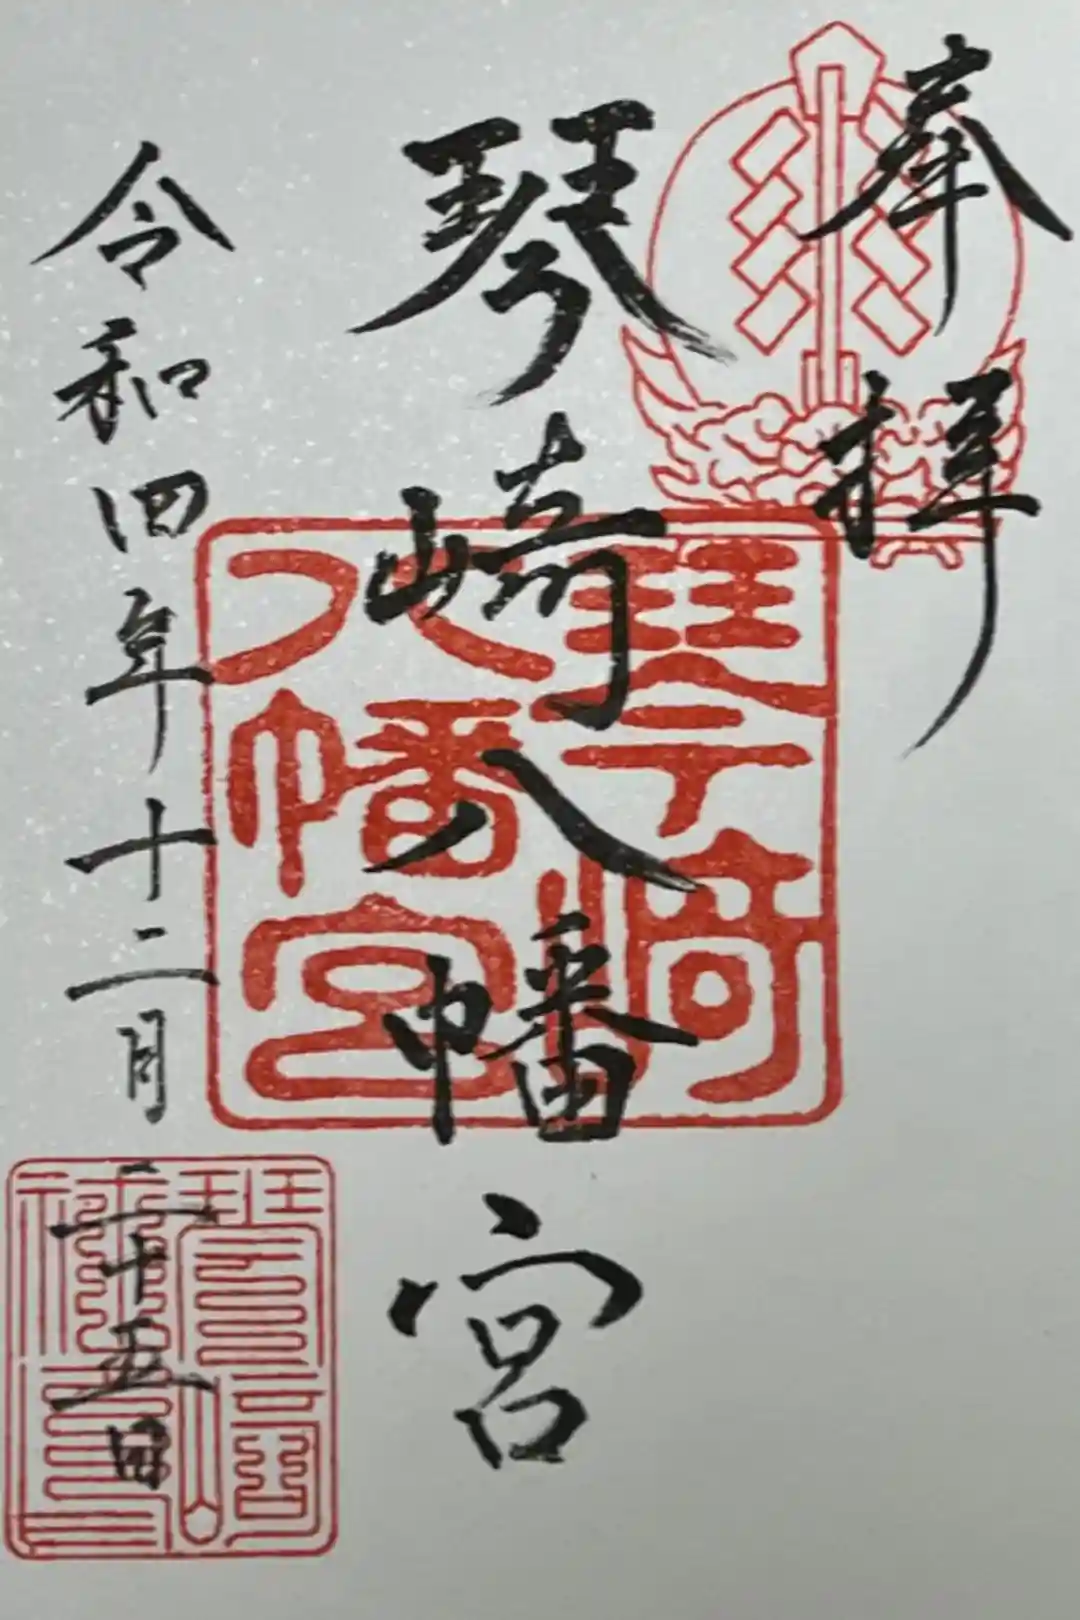 奉拝
琴崎八幡宮
琴崎八幡宮
令和四年十二月二十五日